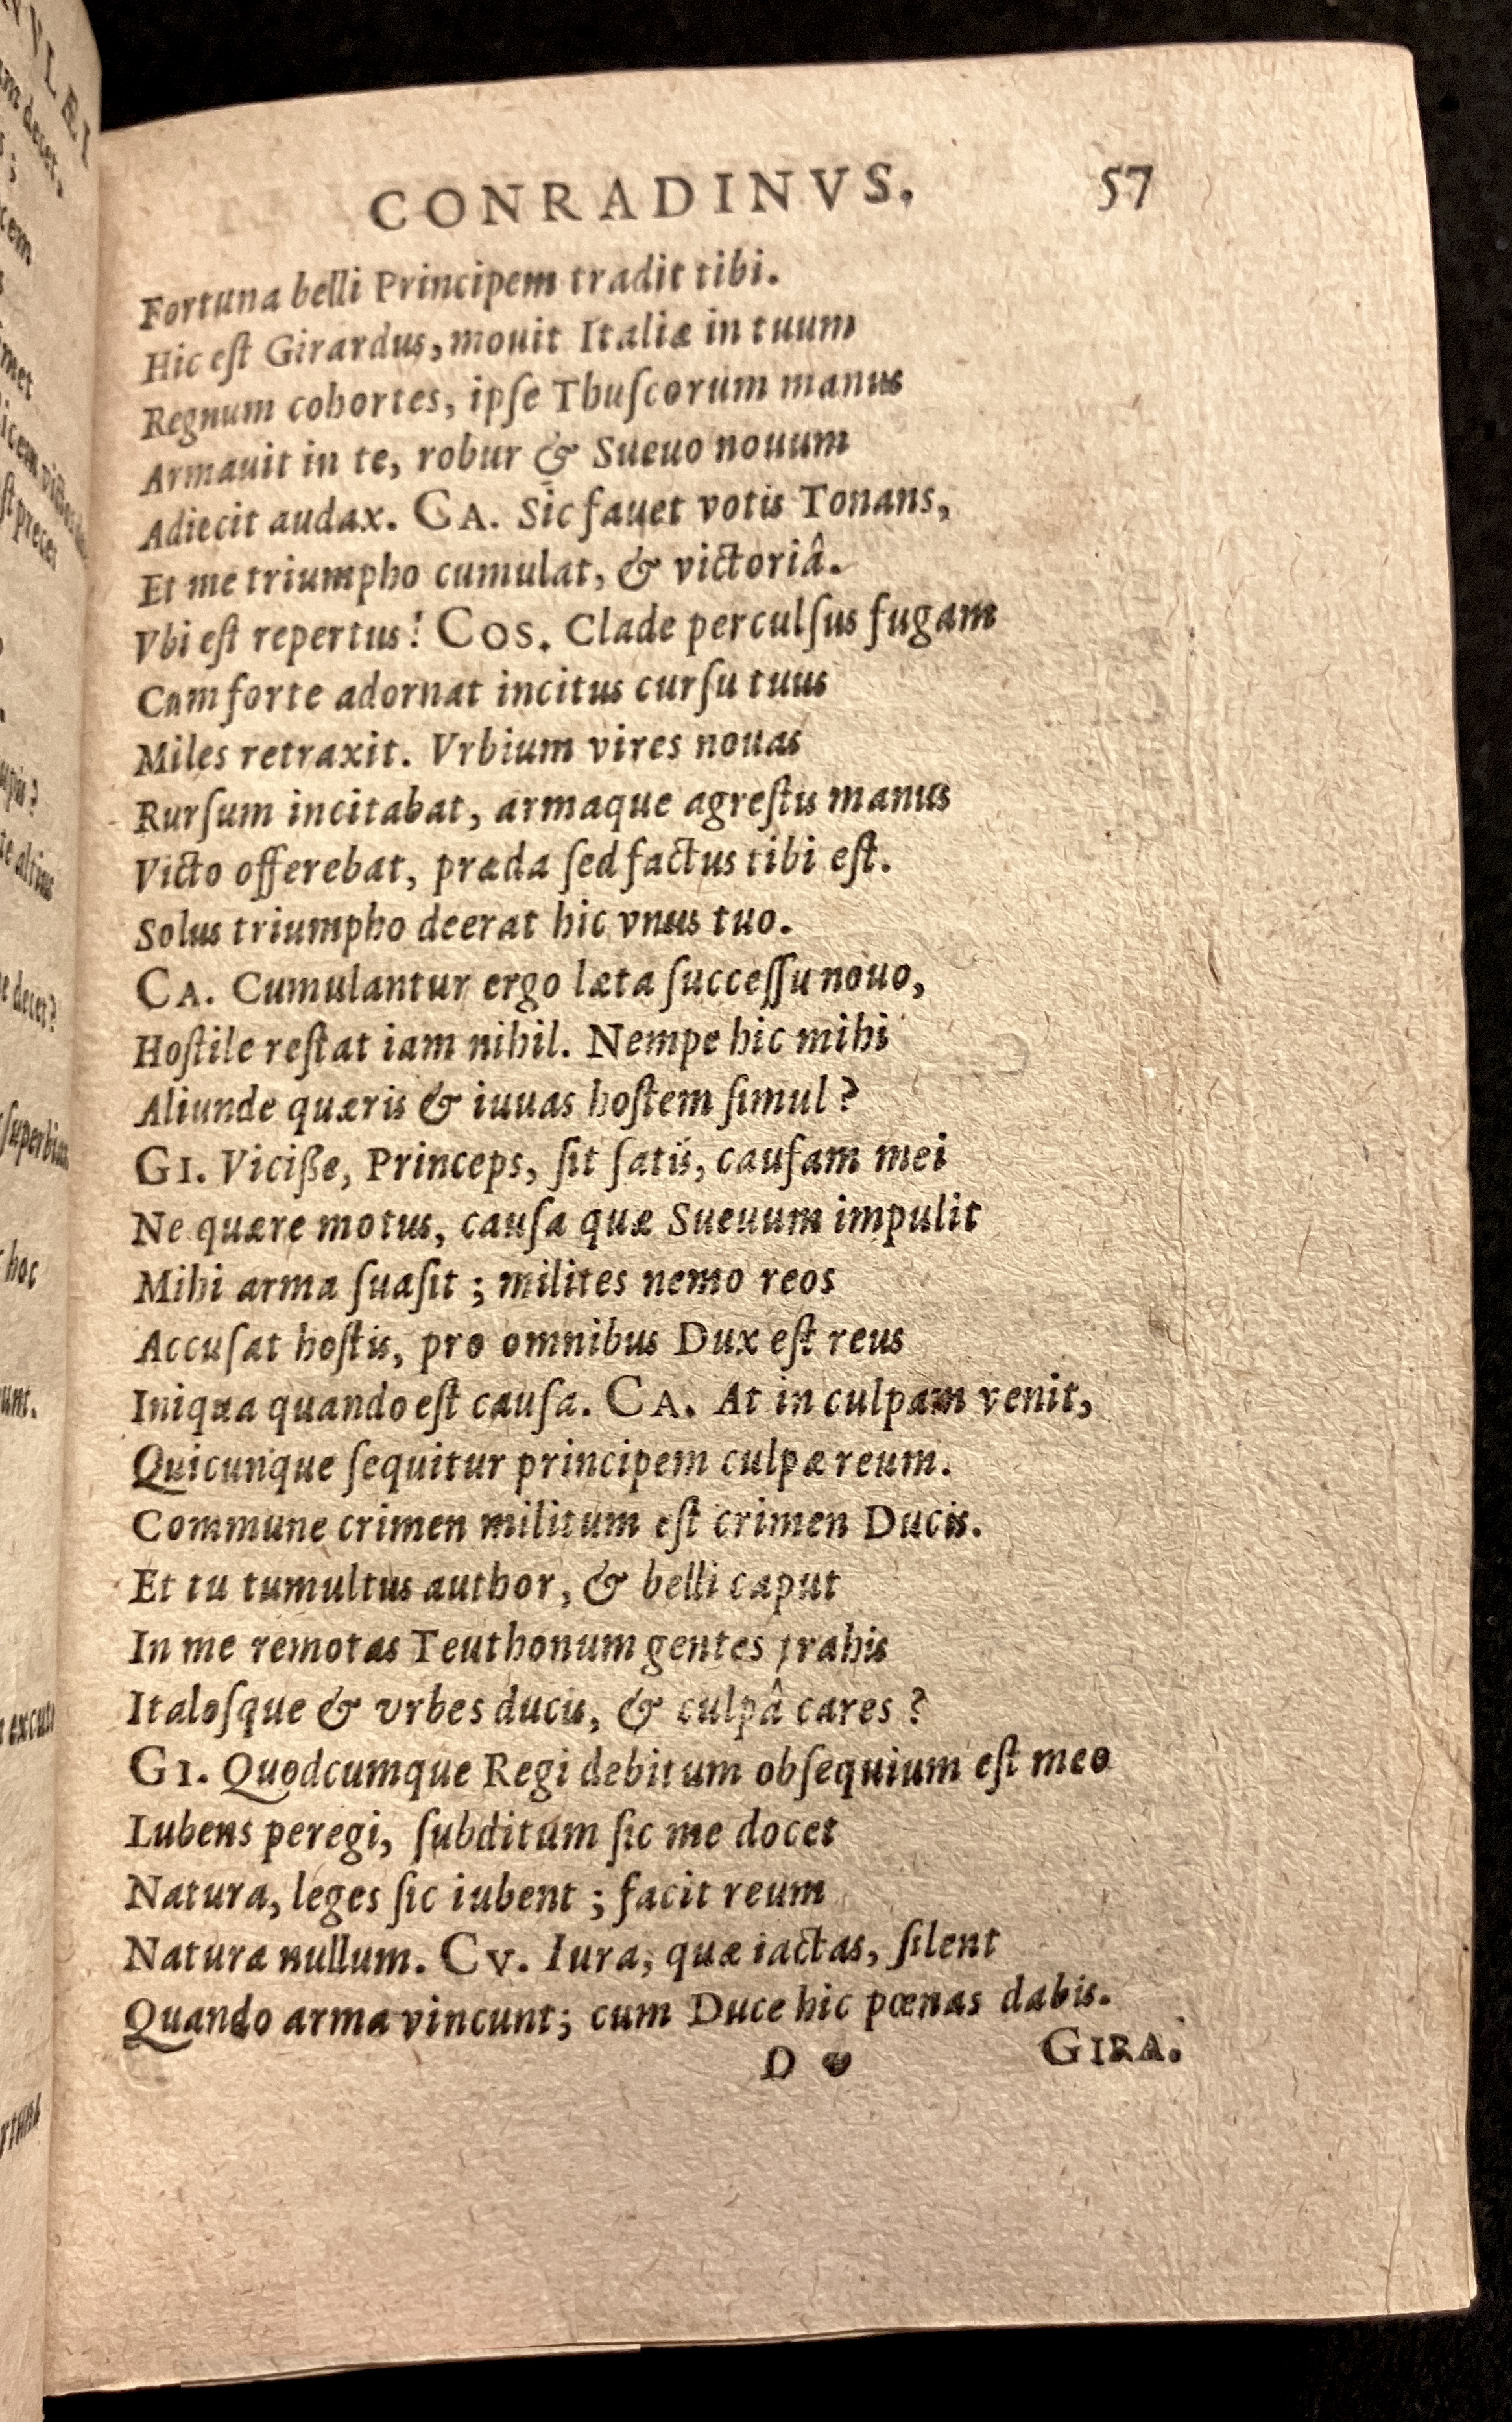 CONRADINVS. 57
Fortuna belli Principem tradit tibi.
Hic eſt Girardus, mouit Italiæ in tuum
Regnum cohortes, ipſe Thuſcorum manus
Armauit in te, robur & Sueuo nouum
Adiecit audax. CA. Sic fauet votis Tonans,
Et me triumpho cumulat, & victoriâ.
Vbi eſt repertus! COS. Clade perculſus fugam
Cum forte adornat incitus curſu tuus
Miles retraxit. Vrbium vires nouas
Rurſum incitabat, armaque agreſtis manus
Victo offerebat, præda ſed factus tibi eſt.
Solus triumpho deerat hic vnus tuo.
CA. Cumulantur ergo læta ſucceſſu nouo,
Hoſtile reſtat iam nihil. Nempe hic mihi
Aliunde quæris & iuuas hoſtem ſimul?
GI. Viciße, Princeps, ſit ſatis, cauſam mei
Ne quære motus, cauſa quæ Sueuum impulit
Mihi arma ſuaſit; milites nemo reos
Accuſat hoſtis, pro omnibus Dux eſt reus
Iniqua quando eſt cauſa. CA. At in culpam venit,
Quicunque ſequitur principem culpæ reum.
Commune crimen militum eſt crimen Ducis.
Et tu tumultus author, & belli caput
In me remotas Teuthonum gentes trahis
Italoſque & vrbes ducis, & culpâ cares?
GI. Quodcumque Regi debitum obſequium eſt meo
Lubens peregi, ſubditum ſic me docet
Natura, leges ſic iubent; facit reum
Natura nullum. CV. Iura, quæ iactas, ſilent
Quando arma vincunt; cum Duce hic pœnas dabis.
D GIRA.